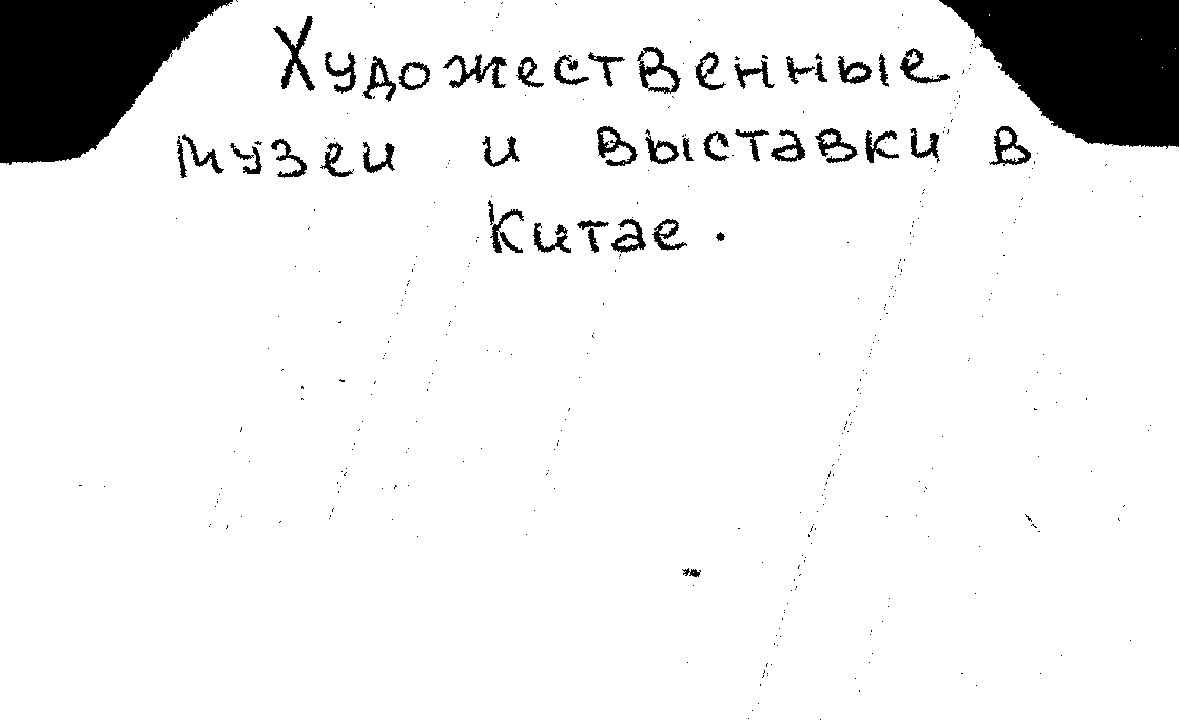 Художественные
музеи и выставки в
Китае.